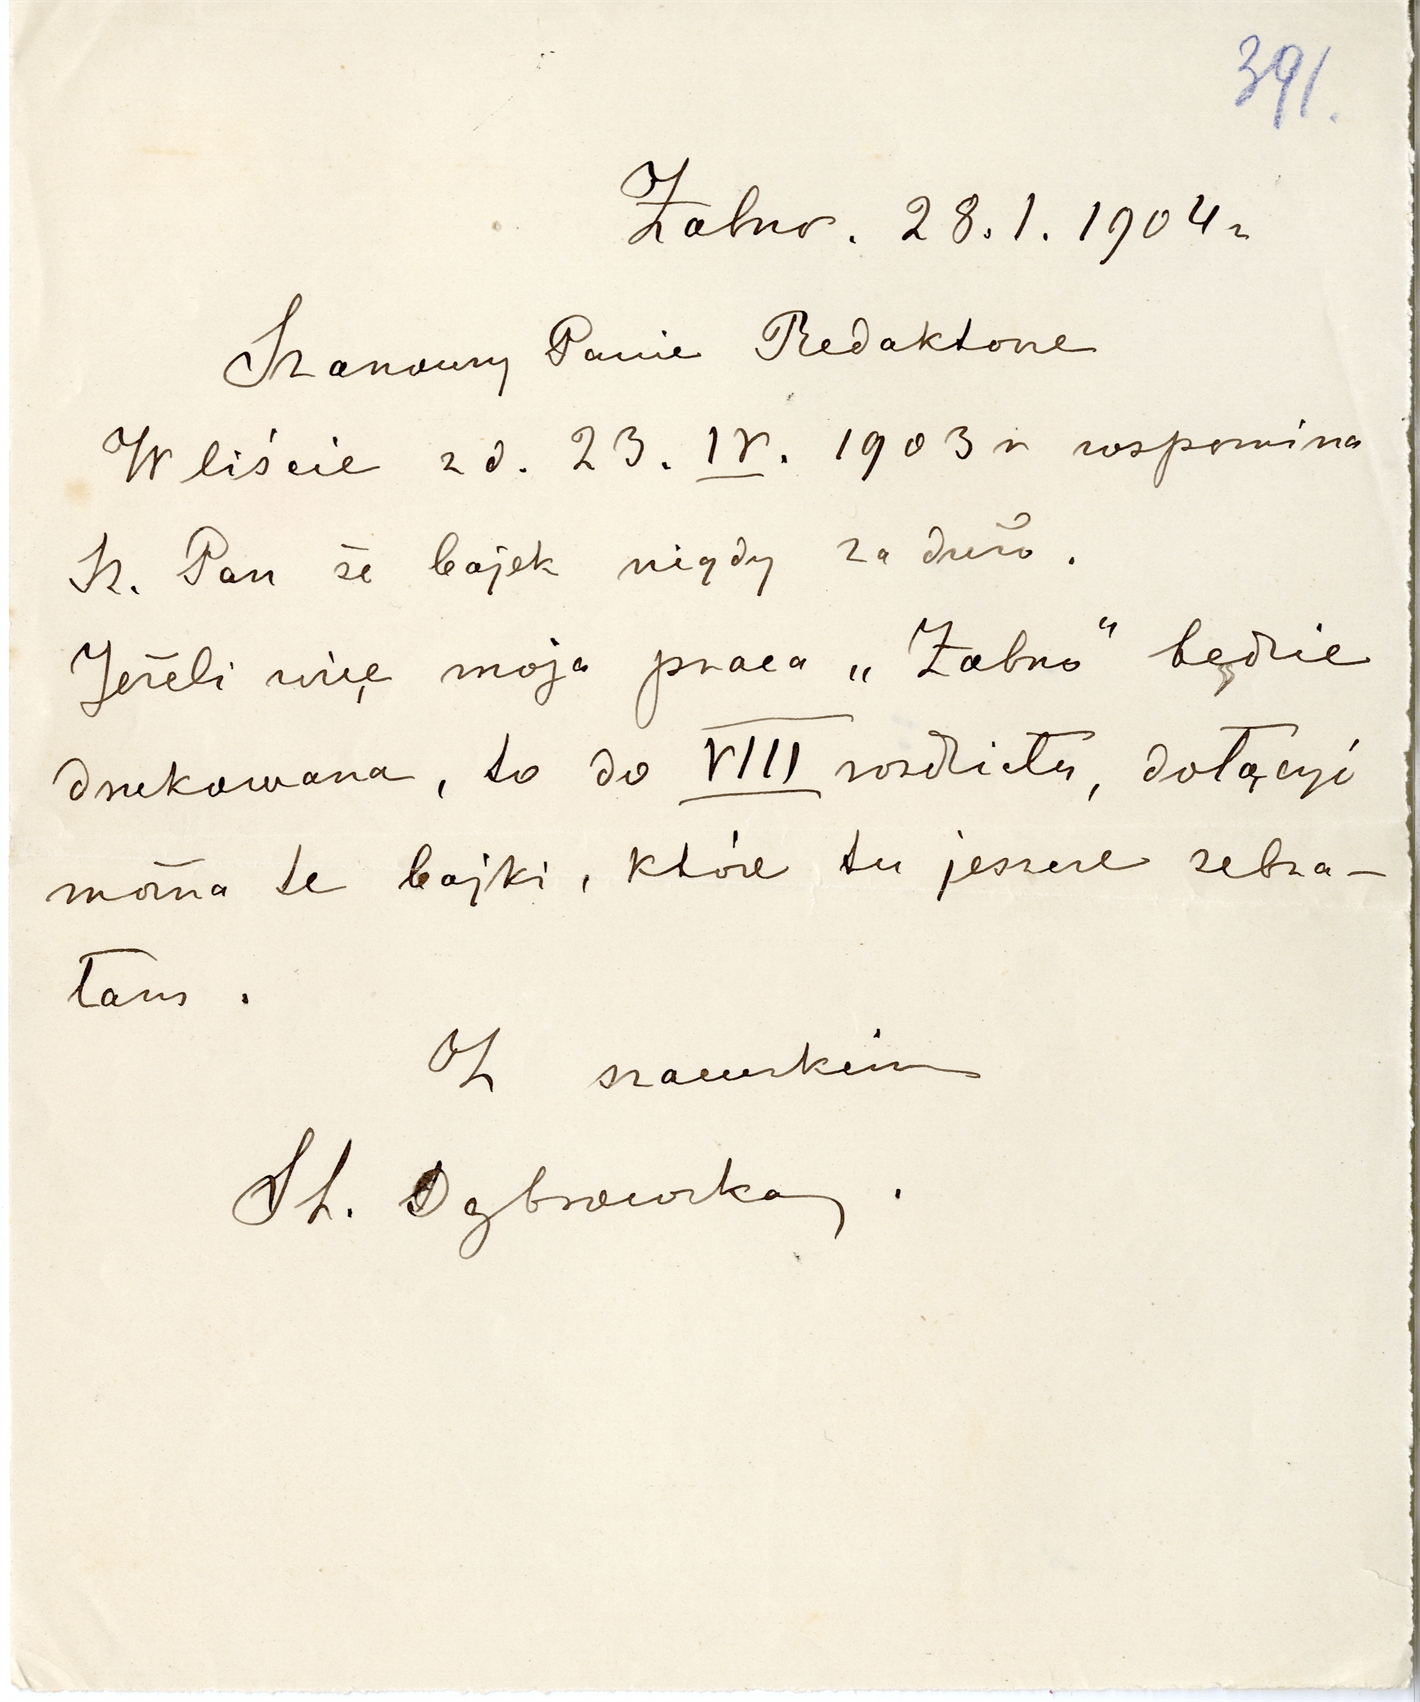 391.
Żabno. 28.1.1904 r
Szanowny Panie Redaktorze
W liście z d. 23. IV. 1903 r wspomina
Sz. Pan że bajek nigdy za dużo.
Jeżeli więc moja praca „Żabno" będzie
drukowana, to do VIII rozdziału, dołączyć
można te bajki, które tu jeszcze zebra-
łam.
Z szacunkiem
St. Dąbrowska.